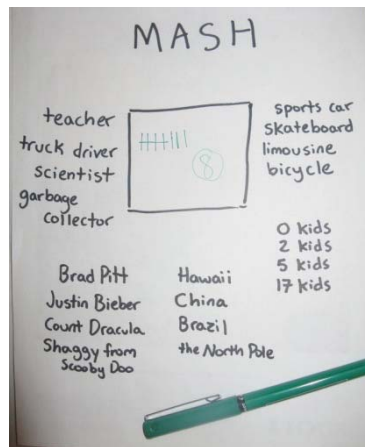 MASH
teacher
truck driver
scientist
garbage
collector
8
sports car
skateboard
limousine
bicycle
0 kids
2 kids
5 kids
17 kids
Brad Pitt
Justin Bieber
Count Dracula
Shaggy from
Scooby Doo
Hawaii
China
Brazil
the North Pole